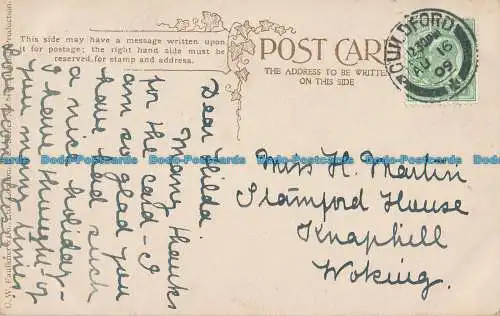 This side may have a message written upon
it for postage; the right hand side must be
reserved for stamp and address.
POST CARD
THE ADDRESS TO BE WRITTEN
ON THIS SIDE
GUILDFORD
12.30PM
AU 16
09
Dear Hilda
Many thanks
for the card - I
am so glad you
have had such
a nice holiday -
I have thought of
you many times
Miss H. Martin
Stamford House
Knaphill
Woking.
C. W. Faulkner & Co.
Production.